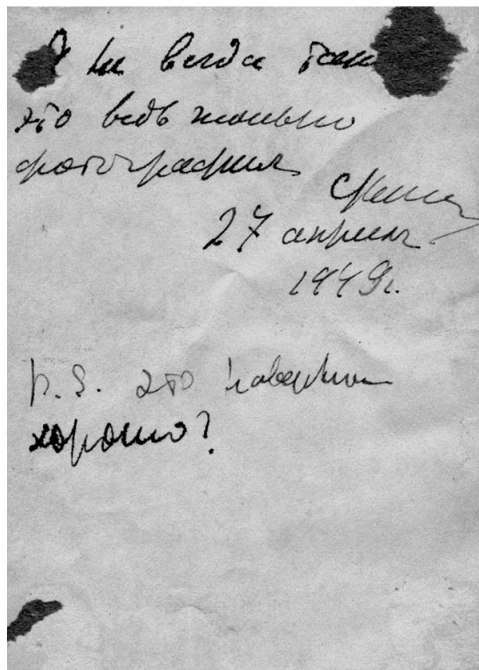 Я не всегда так
это ведь только
фотография
27 апреля
1949г.
P.S. это наверно
хорошо?